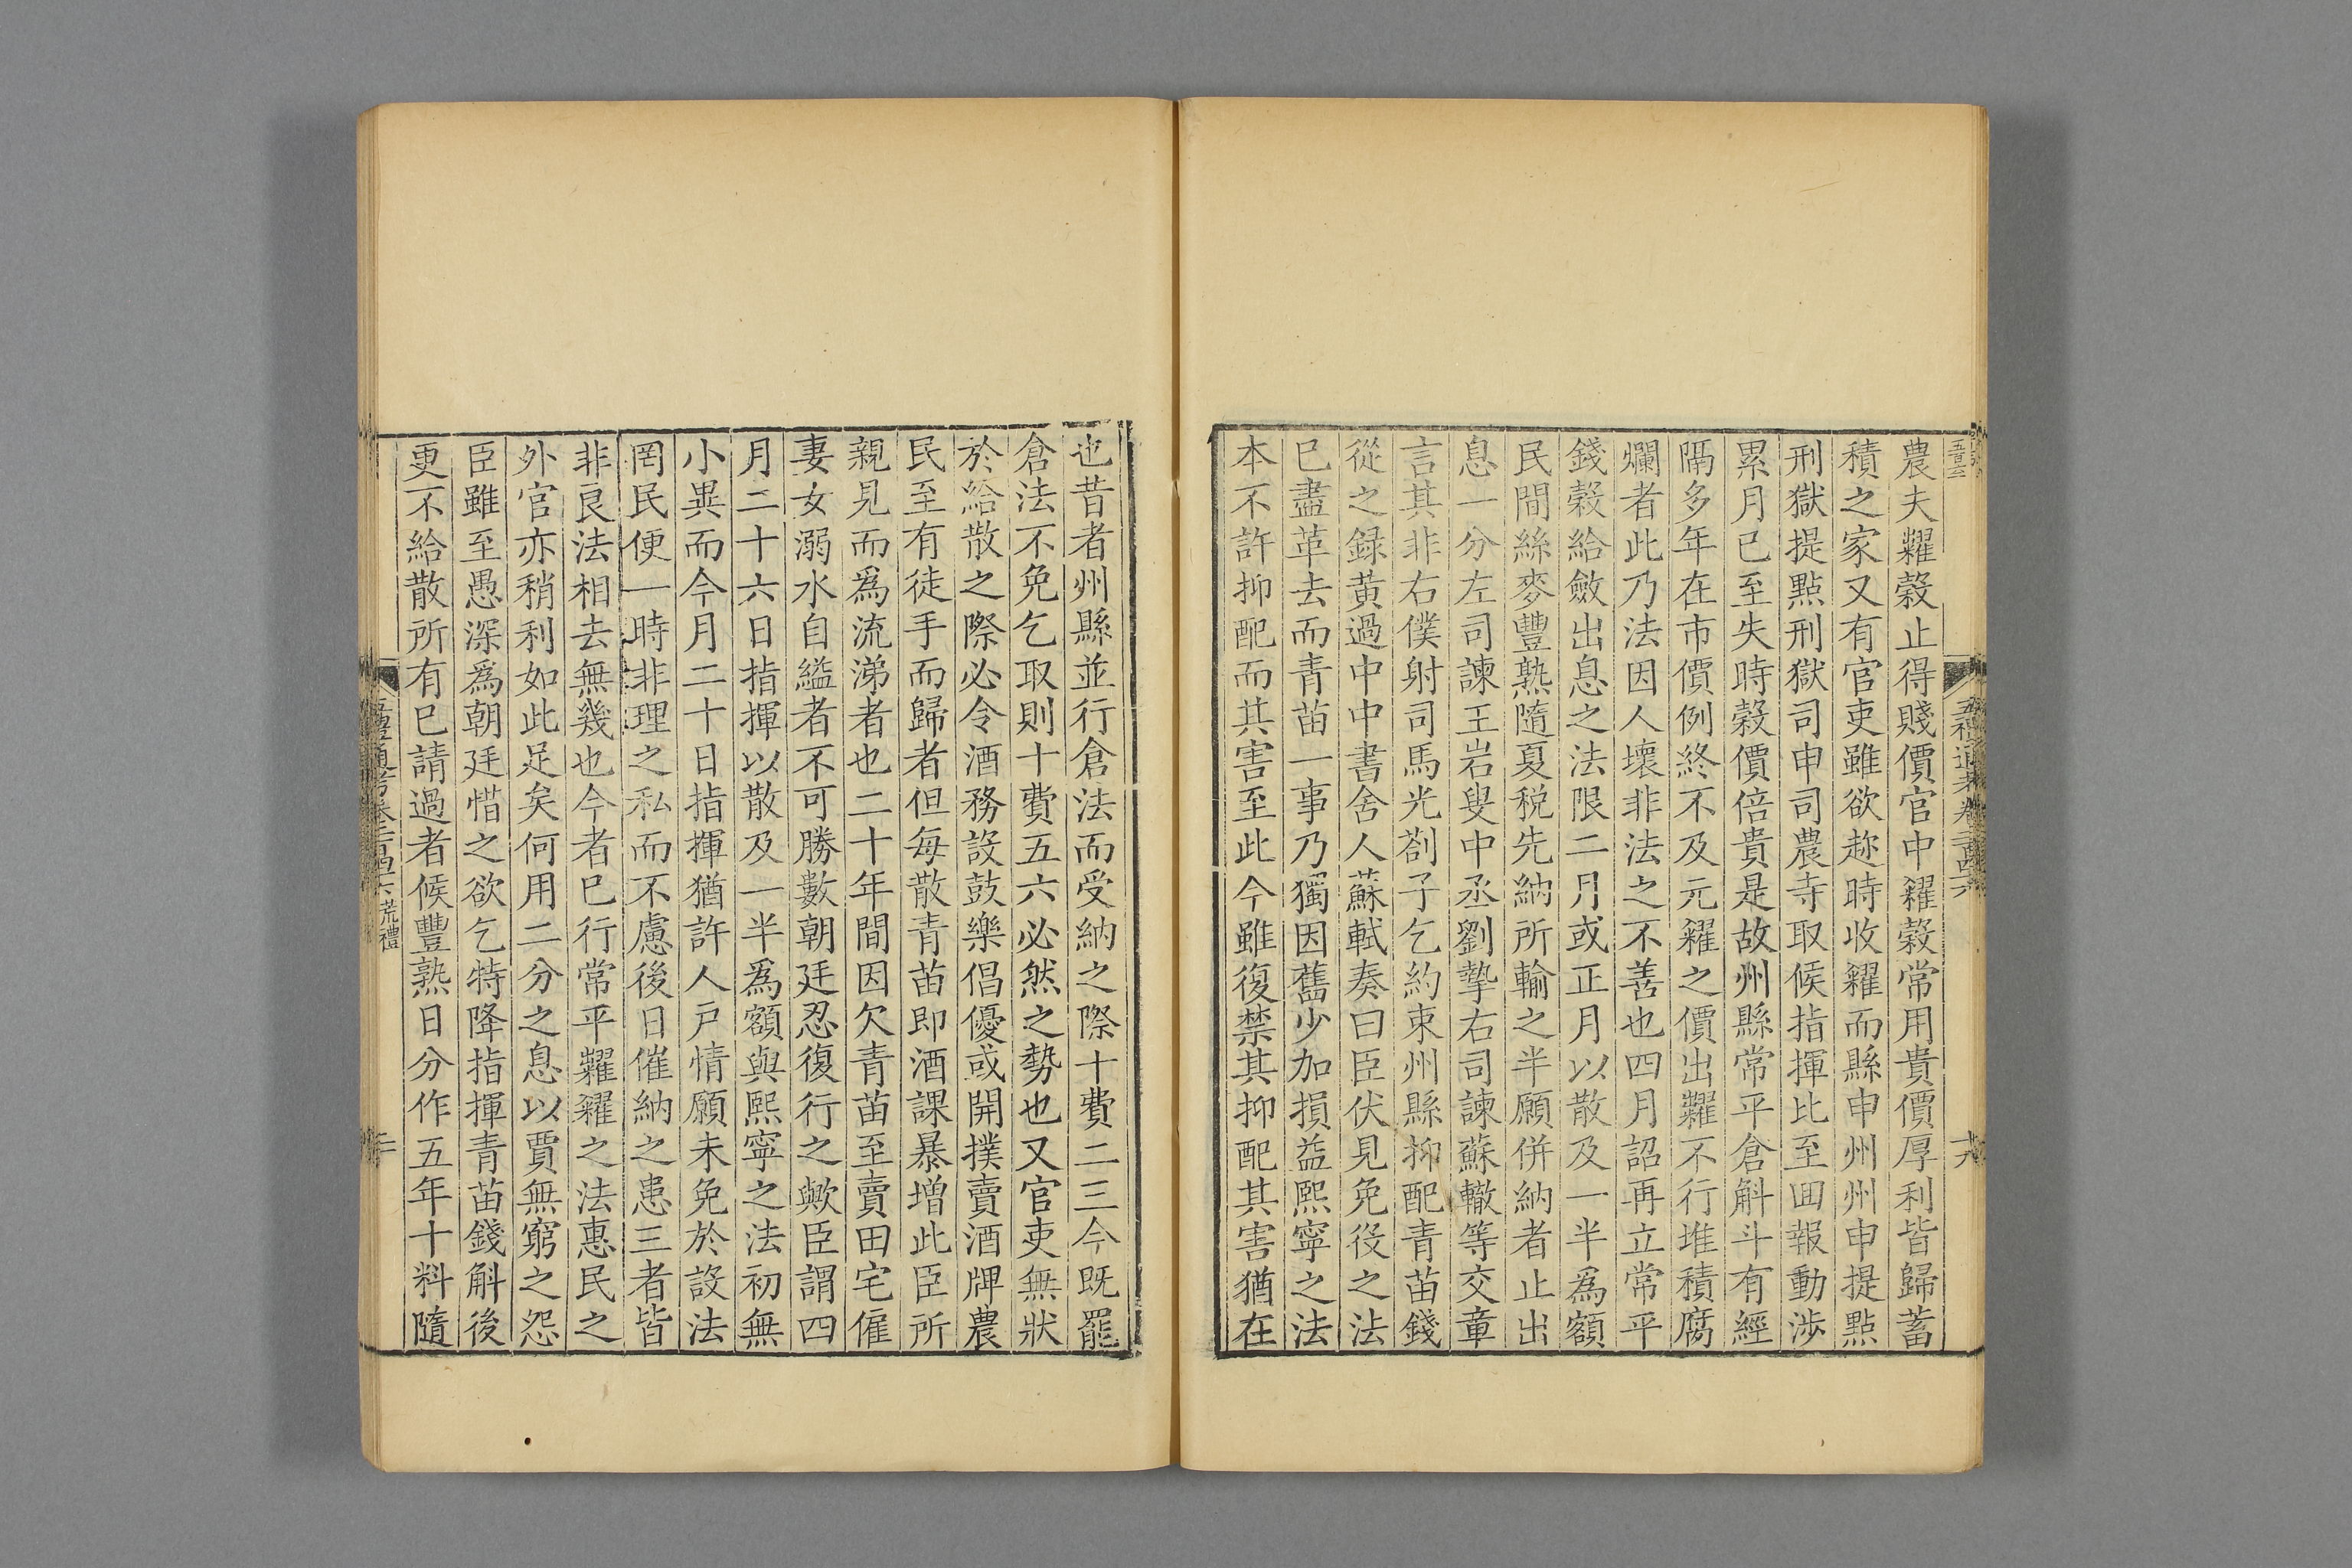 農夫糶穀止得賤價官中糴穀常用貴價厚利皆歸蓄
積之家又有官吏雖欲趂時收糴而縣申州州申提點
刑獄提點刑獄司申司農寺取候指揮比至囬報動涉
累月已至失時穀價倍貴是故州縣常平倉斛斗有經
隔多年在市價例終不及元糴之價出糶不行堆積腐
爛者此乃法因人壞非法之不善也四月詔再立常平
錢穀給斂出息之法限二月或正月以散及一半爲額
民間絲麥豐熟隨夏税先納所輸之半願併納者止出
息一分左司諫王岩叟中丞劉摯右司諫蘇轍等交章
言其非右僕射司馬光劄子乞約束州縣抑配青苗錢
從之録黄過中中書舍人蘇軾奏曰臣伏見免役之法
已盡革去而青苗一事乃獨因舊少加損益熙寧之法
本不許抑配而其害至此今雖復禁其抑配其害猶在
也昔者州縣並行倉法而受納之際十費二三今既罷
倉法不免乞取則十費五六必然之勢也又官吏無狀
於給散之際必令酒務設鼓樂倡優或開撲賣酒牌農
民至有徒手而歸者但毎散青苗即酒課暴增此臣所
親見而爲流涕者也二十年間因欠青苗至賣田宅僱
妻女溺水自縊者不可勝數朝廷忍復行之歟臣謂四
月二十六日指揮以散及一半爲額與熙寧之法初無
小異而今月二十日指揮猶許人戶情願未免於設法
罔民便一時非理之私而不慮後日催納之患三者皆
非良法相去無幾也今者已行常平糶糴之法惠民之
外官亦稍利如此足矣何用二分之息以賈無窮之怨
臣雖至愚深爲朝廷惜之欲乞特降指揮青苗錢斛後
更不給散所有已請過者候豐熟日分作五年十料隨
五禮通考卷二百四十六 荒禮